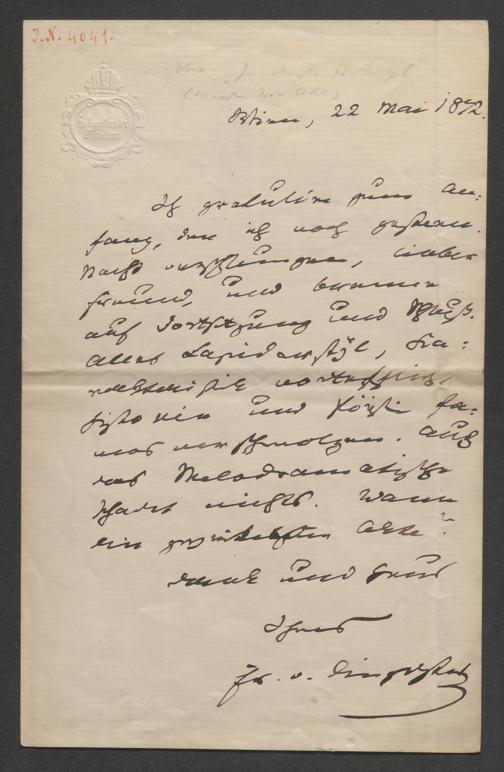 J.N. 4041.
Wien, 22 Mai 1872.
Ich gratulire zum An:
fang, den ich noch gestern
Nacht verschlungen, lieber
Freund, und brenne
auf Fortsetzung und Schluß.
Alles Lapidarstyl,
vortrefflich,
Historie und fa:
mos verschmolzen. Auch
das Melodramatische
schadet nichts. Wann
ein
Dank und Gruß
Ihres
Fr. v. Dingelstedt